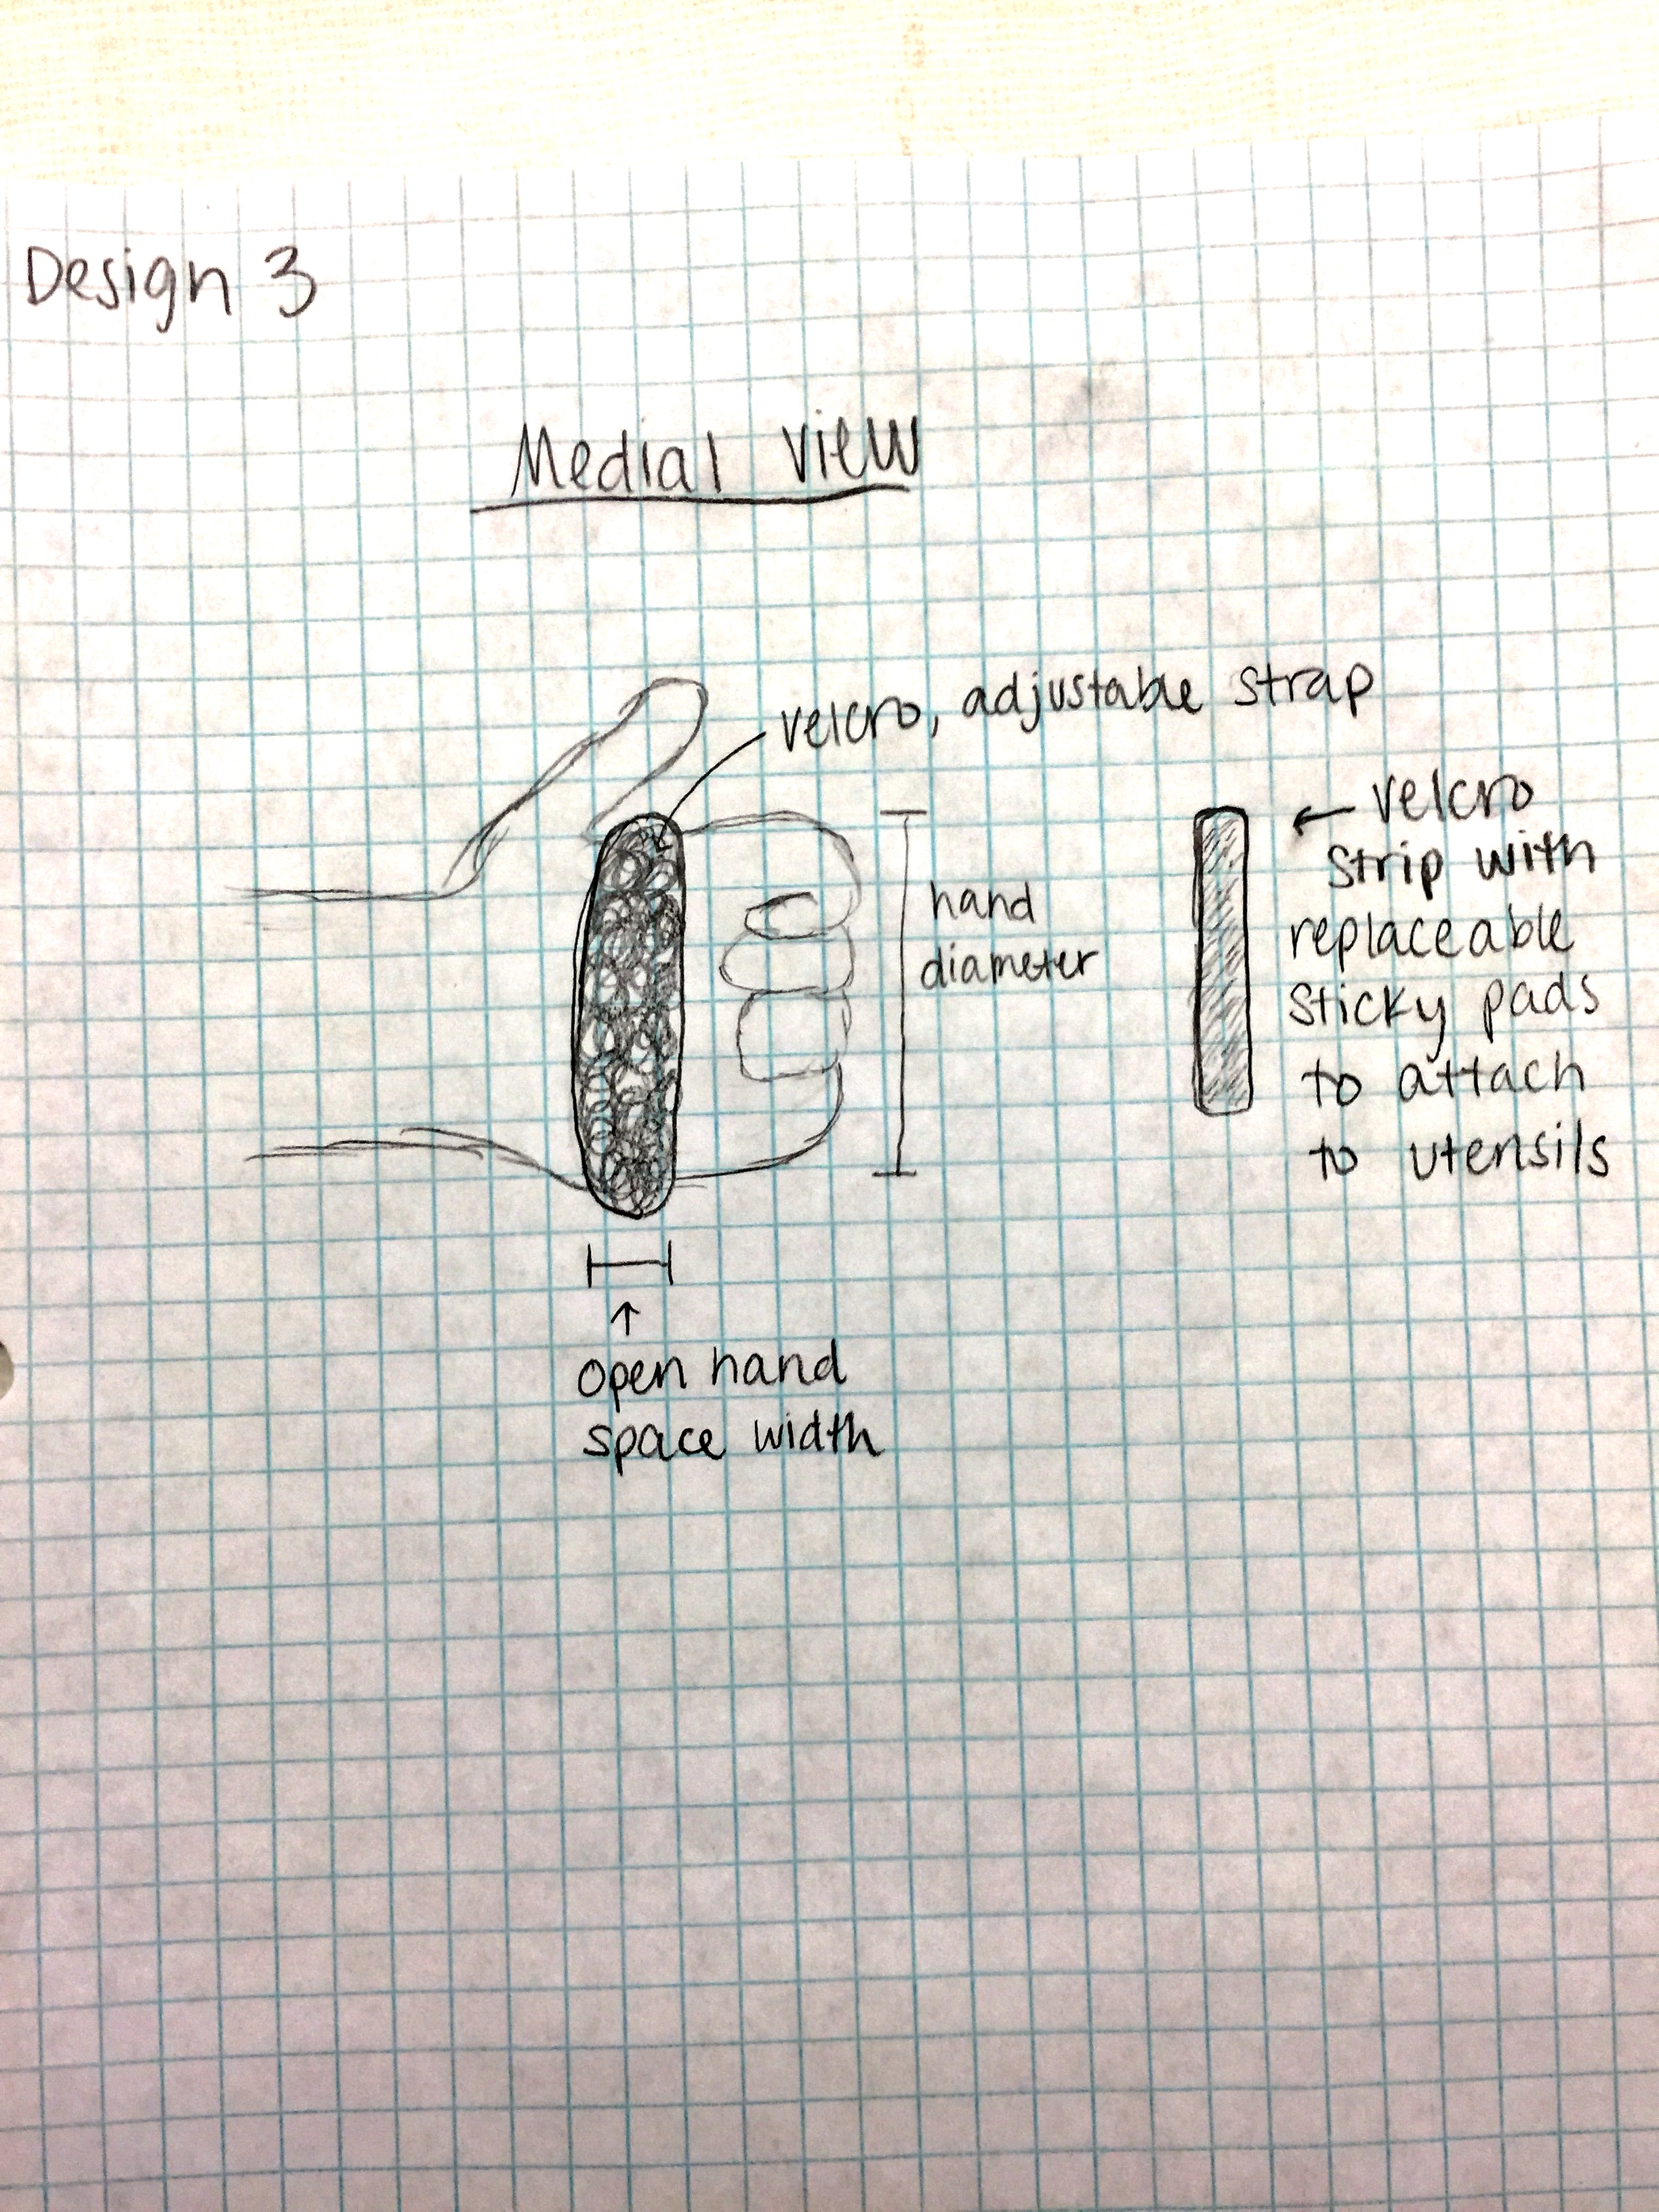 Design 3
Medial View
velcro, adjustable strap
hand
diameter
velcro
strip with
replaceable
sticky pads
to attach
to utensils
open hand
space width